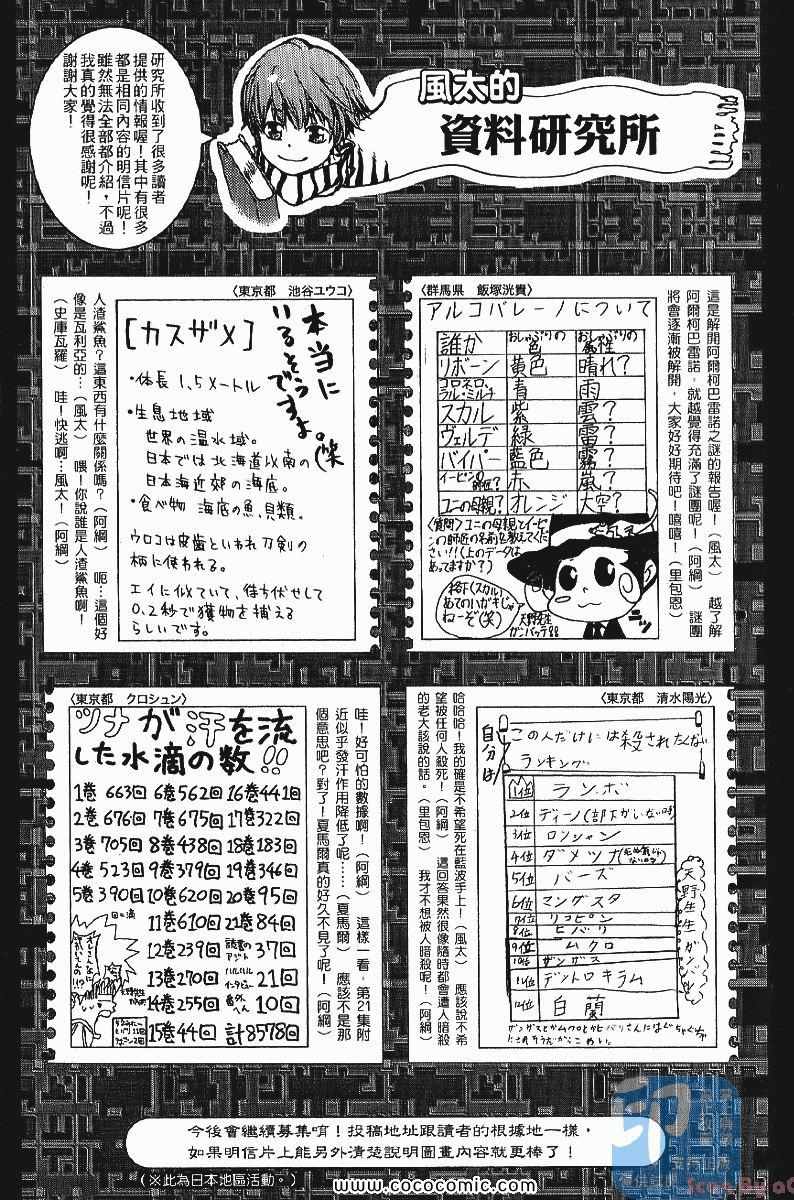 風太的
資料研究所
研究所收到了很多讀者
提供的情報喔！其中有很多
都是相同內容的明信片呢！
雖然無法全部都介紹，不過
我真的覺得很感謝呢！
謝謝大家！
〈群馬県　飯塚洸貴〉
アルコバレーノについて
誰か おしゃぶりの色 おしゃぶりの属性
リボーン 黄色 晴れ？
コロネロ、ラル・ミルチ 青 雨
スカル 紫 雲？
ヴェルデ 緑 雷？
バイパー 藍色 霧？
イーピンの師匠？ 赤 嵐？
ユニの母親？ オレンジ 大空？
〈質問〉ユニの母親とイーピ
ンの師匠の名前を教えてくだ
さい！！（上のデータは
あってますか？）
あてのハガキじゃ
ねーぞ（笑）
天野先生
ガンバッテ
這是解開阿爾柯巴雷諾之謎的報告喔！（風太）　越了解
阿爾柯巴雷諾，就越覺得充滿了謎團呢！（阿綱）　謎團
將會逐漸被解開，大家好好期待吧！嘻嘻！（里包恩）
〈東京都　池谷ユウコ〉
本当に
いるそうですよ。（笑
［カスザメ］
・体長 1.5メートル
・生息地域
世界の温水域。
日本では北海道以南の
日本海近郊の海底。
・食べ物 海底の魚、貝類。
ウロコは皮歯といわれ刀剣の
柄に使われる。
エイに似ていて、待ち伏せして
0.2秒で獲物を捕える
らしいです。
人渣鯊魚？這東西有什麼關係嗎？（阿綱）　呃…這個好
像是瓦利亞的…（風太）　喂！你說誰是人渣鯊魚啊！
（史庫瓦羅）　哇！快逃啊…風太！（阿綱）
〈東京都　清水陽光〉
自分は
この人だけには殺されたくない
ランキング
1位 ランボ
2位 ディーノ（部下がいない時）
3位 ロンシャン
4位 ダメツナ
5位 バーズ
6位 マングスタ
7位 リコピン
8位 ヒバリ
9位 ムクロ
10位 ザンザス
11位 デンドロキラム
12位 白蘭
天野先生ガンバレ
哈哈哈！我的確是不希望死在藍波手上！（風太）　應該說不希
望被任何人殺死！（阿綱）　這回答果然很像隨時都會遭人暗殺
的老大該說的話。（里包恩）　我才不想被人暗殺呢！（阿綱）
〈東京都　クロシュン〉
ツナが汗を流
した水滴の数！！
1巻 663回 6巻562回 16巻441回
2巻676回 7巻675回 17巻322回
3巻705回 8巻438回 18巻183回
4巻523回 9巻379回 19巻346回
5巻390回 10巻620回 20巻95回
11巻610回 21巻84回
12巻239回 37回
13巻270回 21回
14巻255回 番外へん 10回
15巻44回 計8578回
哇！好可怕的數據啊！（阿綱）　這樣一看，第21集附
近似乎發汗作用降低了呢……（夏馬爾）　應該不是那
個意思吧？對了！夏馬爾真的好久不見了呢！（阿綱）
今後會繼續募集唷！投稿地址跟讀者的根據地一樣，
如果明信片上能另外清楚說明圖畫內容就更棒了！
（※此為日本地區活動。）
www.cococomic.com
印